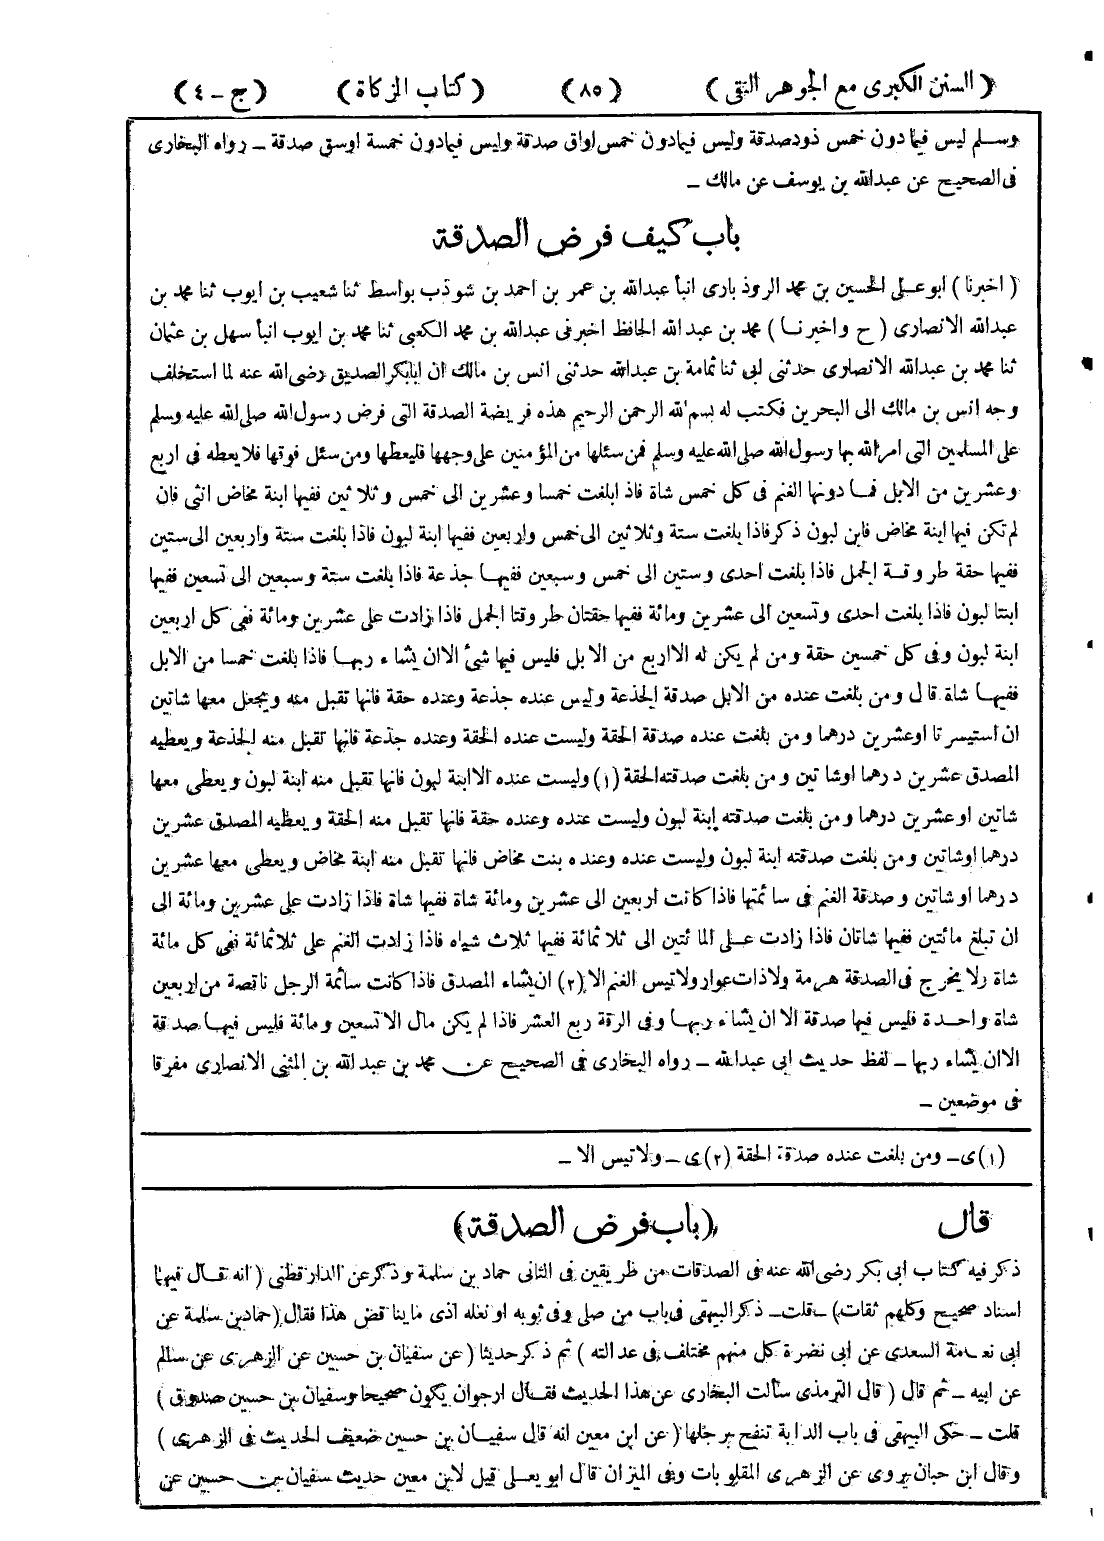 ( السنن الكبرى مع الجوهر النقى ) ( ٨٥ ) ( كتاب الزكاة ) ( ج ـ ٤ )
وسلم ليس فيما دون خمس ذود صدقة وليس فيمادون خمس اواق صدقة وليس فيمادون خمسة اوسق صدقة ـ رواه البخارى
فى الصحيح عن عبدالله بن يوسف عن مالك ـ
باب كيف فرض الصدقة
( اخبرنا ) ابو على الحسين بن محمد الروذبارى انبأ عبدالله بن عمر بن احمد بن شوذب بواسط ثنا شعيب بن ايوب ثنا محمد بن
عبدالله الانصارى ( ح واخبرنا ) محمد بن عبد الله الحافظ اخبرنى عبدالله بن محمد الكعبى ثنا محمد بن ايوب انبأ سهل بن عثمان
ثنا محمد بن عبدالله الانصارى حدثنى ابى ثنا ثمامة بن عبدالله حدثنى انس بن مالك ان ابابكر الصديق رضى الله عنه لما استخلف
وجه انس بن مالك الى البحرين فكتب له بسم الله الرحمن الرحيم هذه فريضة الصدقة التى فرض رسول الله صلى الله عليه وسلم
على المسلمين التى امر الله بها رسول الله صلى الله عليه وسلم فمن سئلها من المؤمنين على وجهها فليعطها ومن سئل فوقها فلا يعطه فى اربع
وعشرين من الابل فما دونها الغنم فى كل خمس شاة فاذ ابلغت خمسا وعشرين الى خمس وثلاثين ففيها ابنة مخاض انثى فان
لم تكن فيها ابنة مخاض فابن لبون ذكر فاذا بلغت ستة وثلاثين الى خمس واربعين ففيها ابنة لبون فاذا بلغت ستة واربعين الى ستين
ففيها حقة طروقة الجمل فاذا بلغت احدى وستين الى خمس وسبعين ففيها جذعة فاذا بلغت ستة وسبعين الى تسعين ففيها
ابنتا لبون فاذا بلغت احدى وتسعين الى عشرين ومائة ففيها حقتان طروقتا الجمل فاذا زادت على عشرين ومائة ففى كل اربعين
ابنة لبون وفى كل خمسين حقة ومن لم يكن له الااربع من الابل فليس فيها شىٔ الاان يشاء ربها فاذا بلغت خمسا من الابل
ففيها شاة قال ومن بلغت عنده من الابل صدقة الجذعة وليس عنده جذعة وعنده حقة فانها تقبل منه ويجعل معها شاتين
ان استيسرتا اوعشرين درهما ومن بلغت عنده صدقة الحقة وليست عنده الحقة وعنده جذعة فانها تقبل منه الجذعة ويعطيه
المصدق عشرين درهما اوشاتين ومن بلغت صدقته الحقة (١) وليست عنده الاابنة لبون فانها تقبل منه ابنة لبون ويعطى معها
شاتين اوعشرين درهما ومن بلغت صدقته إبنة لبون وليست عنده وعنده حقة فانها تقبل منه الحقة ويعطيه المصدق عشرين
درهما اوشاتين ومن بلغت صدقته ابنة لبون وليست عنده وعنده بنت مخاض فانها تقبل منه ابنة مخاض ويعطى معها عشرين
درهما اوشاتين وصدقة الغنم فى سائمتها فاذا كانت اربعين الى عشرين ومائة شاة ففيها شاة فاذا زادت على عشرين ومائة الى
ان تبلغ مائتين ففيها شاتان فاذا زادت على المائتين الى ثلاثمائة ففيها ثلاث شياه فاذا زادت الغنم على ثلاثمائة ففى كل مائة
شاة ولا يخرج فى الصدقة هرمة ولاذات عوار ولاتيس الغنم الا (٢) ان يشاء المصدق فاذا كانت سائمة الرجل ناقصة من اربعين
شاة واحدة فليس فيها صدقة الا ان يشاء ربها وفى الرقة ربع العشر فاذا لم يكن مال الاتسعين ومائة فليس فيها صدقة
الاان يشاء ربها ـ لفظ حديث ابى عبدالله ـ رواه البخارى فى الصحيح عن محمد بن عبد الله بن المثنى الانصارى مفرقا
فى موضعين ـ
(١) ى ـ ومن بلغت عنده صدقة الحقة (٢) ى ـ ولاتيس الا ـ
قال ( باب فرض الصدقة )
ذكر فيه كتاب ابى بكر رضى الله عنه فى الصدقات من طريقين فى الثانى حماد بن سلمة وذكر عن الدارقطنى ( انه قال فيهما
اسناد صحيح وكلهم ثقات ) ـ قلت ـ ذكر البيهقى فى باب من صلى وفى ثوبه او نعله اذى ما يناقض هذا فقال ( حماد بن سلمة عن
ابى نعامة السعدى عن ابى نضرة كل منهم مختلف فى عدالته ) ثم ذكر حديثا ( عن سفيان بن حسين عن الزهرى عن سالم
عن ابيه ـ ثم قال ( قال الترمذى سألت البخارى عن هذا الحديث فقال ارجوان يكون صحيحا وسفيان بن حسين صدوق )
قلت ـ حكى البيهقى فى باب الدابة تنفح برجلها ( عن ابن معين انه قال سفيان بن حسين ضعيف الحديث فى الزهرى )
وقال ابن حبان يروى عن الزهرى المقلوبات وفى الميزان قال ابو يعلى قيل لابن معين حديث سفيان بن حسين عن